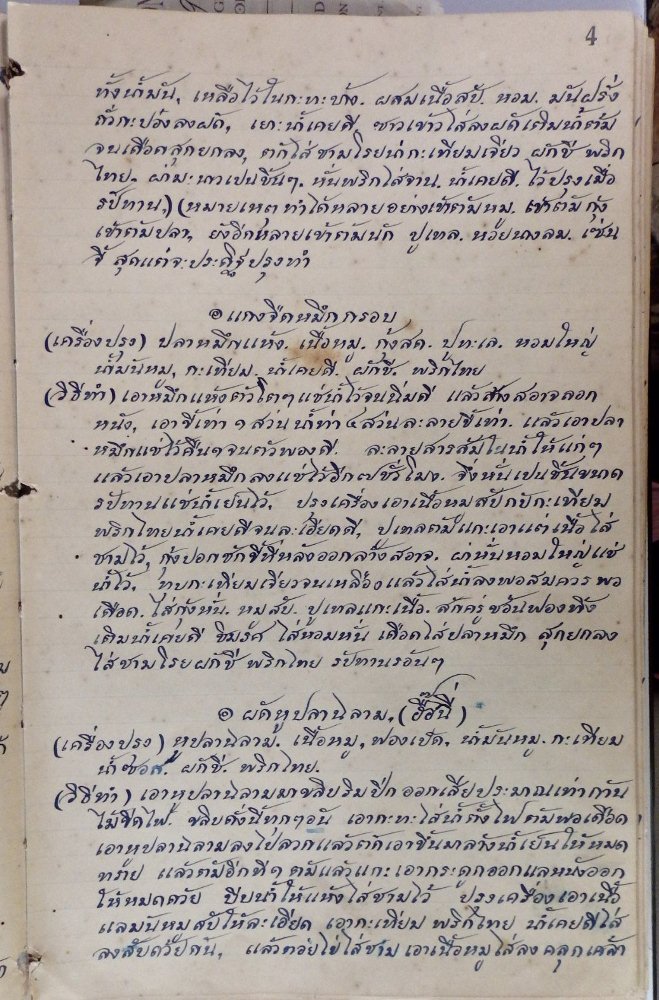 4
ทั้งน้ำมัน, เหลือไว้ในกะทะบ้าง. ผสมเนื้อสับ. หอม. มันฝรั่ง
ถั่วกะป๋องลงผัด, เยาะน้ำเคยดี ซาวเข้าวใส่ลงผัดเติมน้ำต้ม
จนเดือดสุกยกลง, ตักใส่ชามโรยน่ากะเทียมเจียว ผักชี พริก
ไทย. ผ่ามะนาวเปนชิ้นๆ. หั่นพริกใส่จาน. น้ำเคยดี. ไว้ปรุงเมื่อ
รปัทาน,) (หมายเหตุ ทำได้หลายอย่างเข้าต้มหมู. เข้าต้มกุ้ง
เข้าต้มปลา, ยังอีกหลายเข้าต้มนัก ปูเทล. หวยนางลม. เซ่น
จี้ สุดแต่จะประดิฐปรุงทำ
๏ แกงจืดหมึกกรอบ
(เครื่องปรุง) ปลาหมึกแห้ง. เนื้อหมู. กุ้งสด. ปูทะเล. หอมใหญ่
น้ำมันหมู, กะเทียม. น้ำเคยดี. ผักชี. พริกไทย
(วิธีทำ) เอาหมึกแห้งตัวโตๆแช่น้ำไว้จนนิ่มดี แล้วล้างสอาจลอก
หนัง, เอาขี้เท่า ๑ ส่วน น้ำท่า ๔ ส่วนละลายขี้เท่า. แล้วเอาปลา
หมึกแช่ไว้คืน๑จนตัวพองดี. ละลายสารส้มในน้ำให้แก่ๆ
แล้วเอาปลาหมึกลงแช่ไว้อีก๗ชั่วโมง. จึงหั่นเปนชิ้นขนาด
รปัทานแช่น้ำเย็นไว้. ปรุงเครื่องเอาเนื้อหมูสับกับกะเทียม
พริกไทยน้ำเคยดีจนละเอียดดี, ปูเทลต้มแกะเอาแต่เนื้อใส่
ชามไว้, กุ้งปอกชักขี้ที่หลังออกล้างสอาจ. ผ่าหั่นหอมใหญ่แช่
น้ำไว้. ทุบกะเทียมเจียวจนเหลืองแล้วใส่น้ำลงพอสมควร พอ
เดือด. ใส่กุ้งหั่น. หมูสับ. ปูเทลแกะเนื้อ. สักครู่ช้อนฟองทิ้ง
เติมน้ำเคยดี ชิมรศ ใส่หอมหั่น เดือดใส่ปลาหมึก สุกยกลง
ใส่ชามโรยผักชี พริกไทย รปัทานรอันๆ
๏ ผัดหูปลาฉลาม, (ฮื้อฉี่)
(เครื่องปรุง) หูปลาฉลาม. เนื้อหมู, ฟองเป็ด, น้ำมันหมู. กะเทียม
น้ำซวส. ผักชี. พริกไทย.
(วิธีทำ) เอาหูปลาฉลามมาขลิบริมปีกออกเสียประมาณเท่าก้าน
ไม้ขีดไฟ. ขลิบดั่งนี้ทุกๆอัน เอากะทะใส่น้ำตั้งไฟต้มพอเดือด
เอาหูปลาฉลามลงไปลวกแล้วตักเอาขึ้นมาล้างน้ำเย็นให้หมด
ทราย แล้วต้มอีกทีๆ ต้มแล้วแกะเอากระดูกออกแลหนังออก
ให้หมดด้วย บีบน้ำให้แห้งใส่ชามไว้ ปรุงเครื่องเอาเนื้อ
แลมันหมูสับให้ละเอียด เอากะเทียม พริกไทย น้ำเคยดีใส่
ลงสับด้วยกัน, แล้วต่อยไข่ใส่ชาม เอาเนื้อหมูใส่ลง คลุกเคล้า